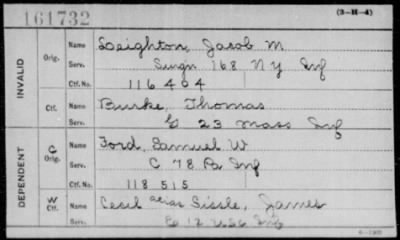 161732
(3-H-4)
INVALID
Orig.
Name Leighton, Jacob M
Serv. Surgn 168 N Y Inf
Ctf. No. 116404
Ctf.
Name Burke, Thomas
Serv. G 23 Mass Inf
DEPENDENT
C
Orig.
Name Ford, Samuel W
Serv. C 78 Pa Inf
Ctf. No. 118515
W
Ctf.
Name Cecil alias Sissle, James
Serv. 12 Inf